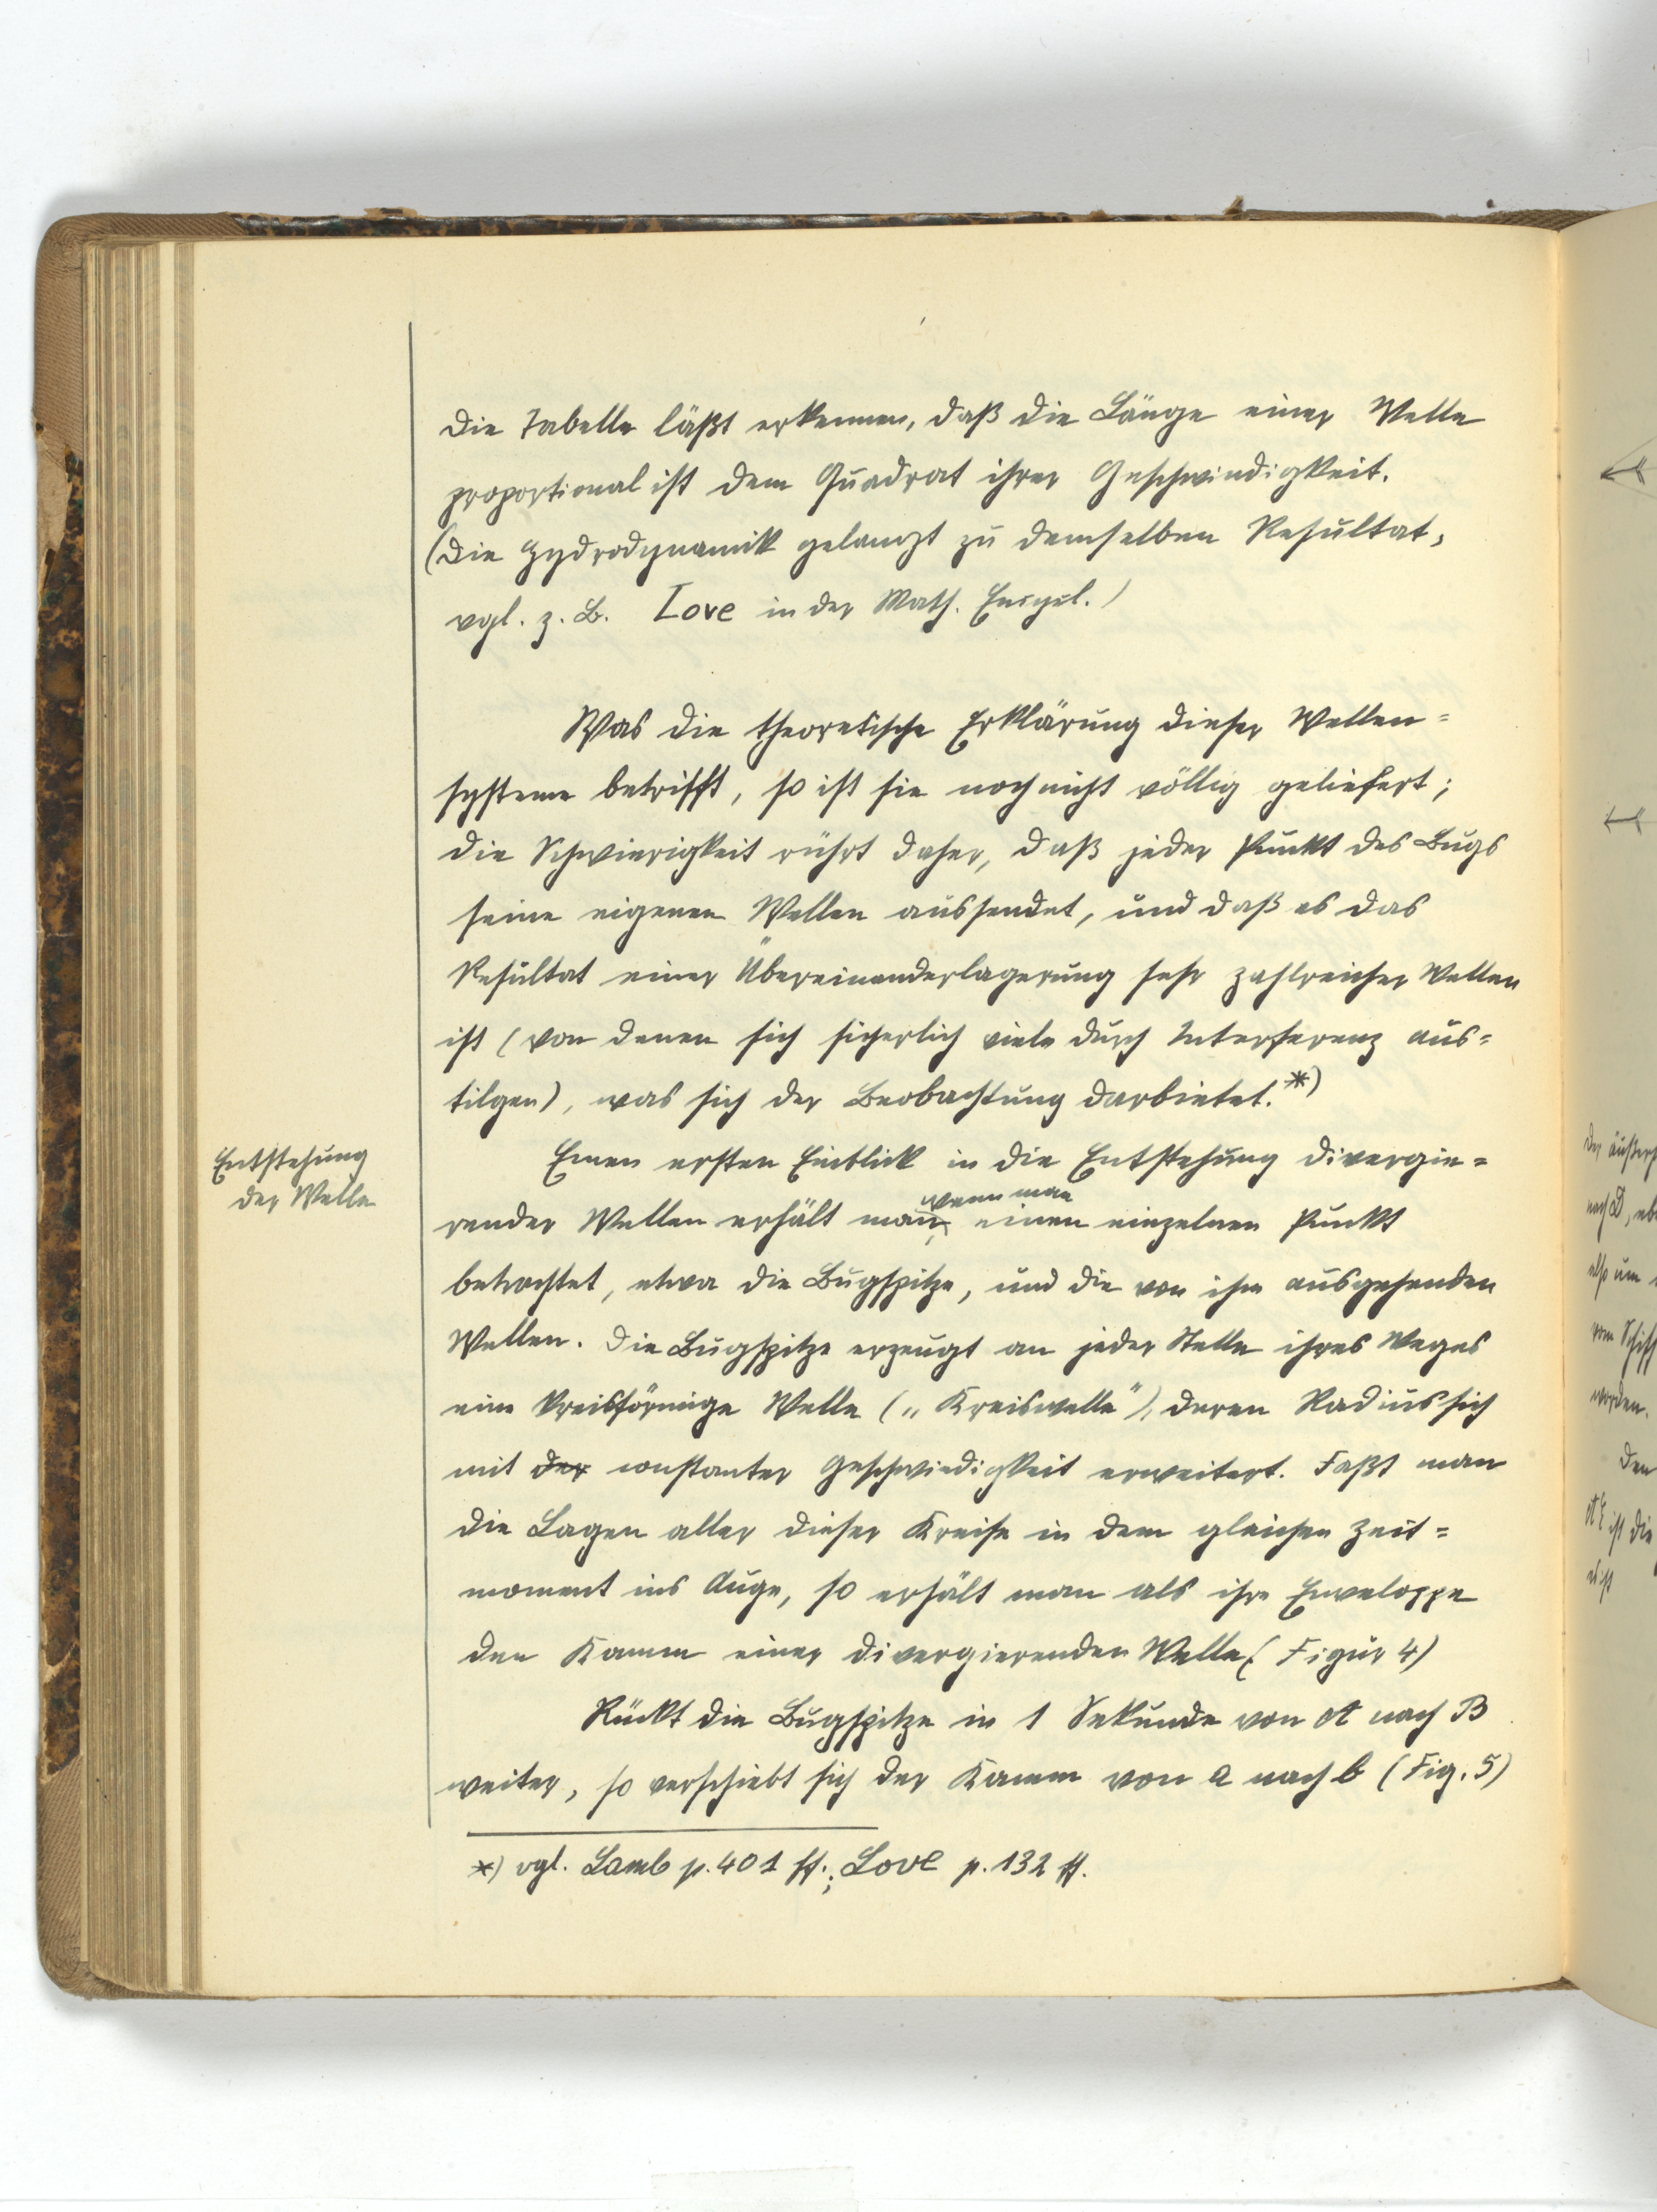 Die Tabelle läßt erkennen, daß die Länge einer Welle
proportional ist dem Quadrat ihrer Geschwindigkeit.
(Die Hydrodynamik gelangt zu demselben Resultat,
vgl. z. B. Love in der Math. Encycl.)
Was die theoretische Erklärung dieser Wellen=
systeme betrifft, so ist sie noch nicht völlig geliefert;
die Schwierigkeit rührt daher, daß jeder Punkt des Bugs
seine eigenen Wellen aussendet, und daß es das
Resultat einer Übereinanderlagerung sehr zahlreicher Wellen
ist (von denen sich sicherlich viele durch Interferenz aus=
tilgen), was sich der Beobachtung darbietet.*)
Entstehung
der Welle
Einen ersten Einblick in die Entstehung divergie=
render Wellen erhält man, wenn man einen einzelnen Punkt
betrachtet, etwa die Bugspitze, und die von ihm ausgehenden
Wellen. Die Bugspitze erzeugt an jeder Stelle ihres Weges
eine kreisförmige Welle („Kreiswelle"), deren Radius sich
mit der constanter Geschwindigkeit erweitert. Faßt man
die Lagen aller dieser Kreise in dem gleichen Zeit=
moment ins Auge, so erhält man als ihre Enveloppe
den Kamm einer divergierenden Welle (Figur 4)
Rückt die Bugspitze in 1 Sekunde von A nach B
weiter, so verschiebt sich der Kamm von a nach b (Fig. 5)
*) vgl. Lamb p. 401 ff.; Love p. 132 ff.
nach D,
vom Schiff
worden.
Den
ist die